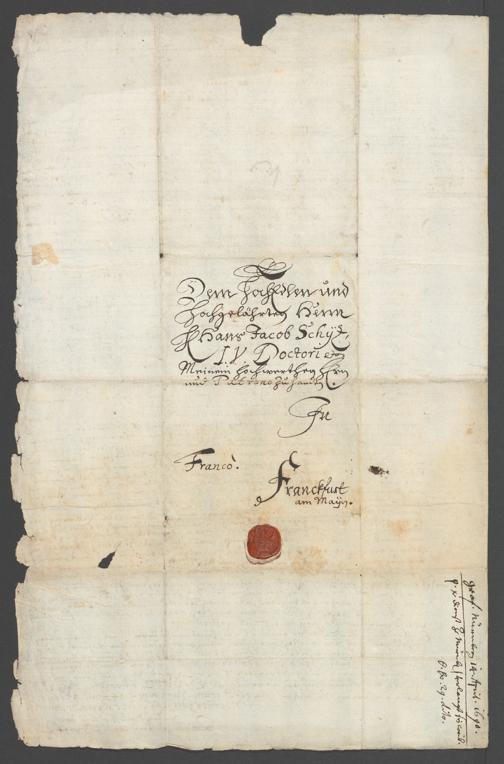 Dem HochEdlen und
Hochgelährten Herrn
H. Hans Jacob Schütz,
I V Doctori etc
Meinem hochwerthen Hrn
und Patrono zu handen
In
Franco.
Franckfurt
am Mayn.
Nürnberg 14. April. 1690.
29. dito.